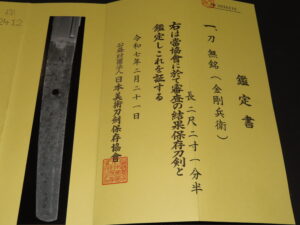 鑑定書
一、刀 無銘(金剛兵衛)
長二尺二寸一分半
右は當協會に於て審査の結果保存刀剣と
鑑定しこれを証する
令和七年二月二十一日
公益財団法人日本美術刀剣保存協會